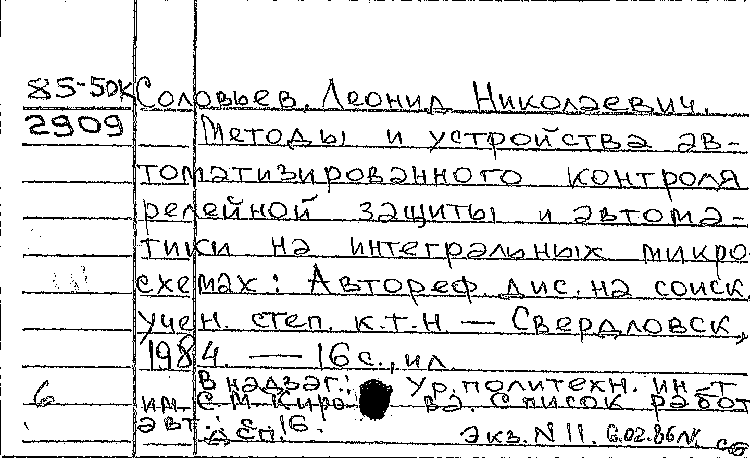 85-5DK Соловьев, Леонид Николаевич.
2909 Методы и устройства ав-
томатизированного контроля
релейной защиты и автома-
тики на интегральных микро
схемах: Автореф. дис. на соиск.
учен. степ. к.т.н — Свердловск,
1984. — 16 с., ил.
В надзаг.: Ур. политехн. ин-т
6 им. С.М. Киро ва. Список работ
авт.: с. 16.
Экз. N 11.